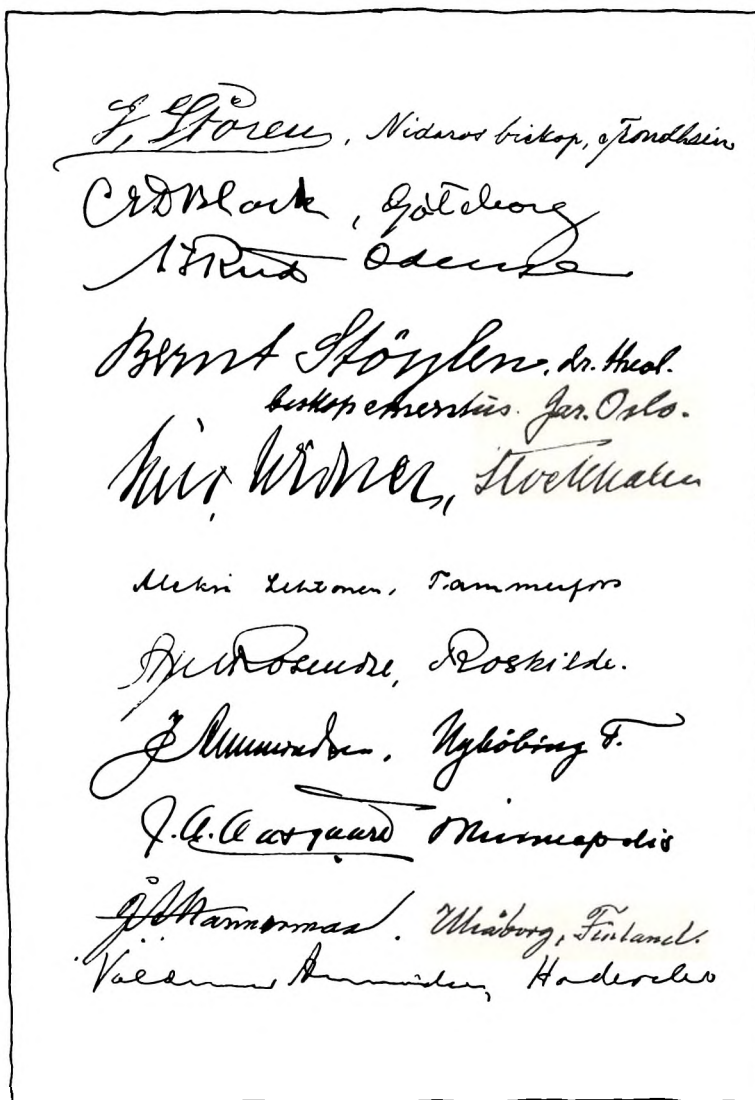 J. Støren, Nidaros biskop, Trondheim
C E D Block, Göteborg
A J Rud Odense
Bernt Støylen, dr. theol.
biskop emeritus. Jar. Oslo.
Stockholm
Aleksi Lehtonen, Tammerfors
Axel Rosendal, Roskilde.
J Ammundsen. Nykøbing F.
J. A. Aasgaard Minneapolis
J A Mannermaa. Uleåborg, Finland.
Valdemar Ammundsen, Haderslev